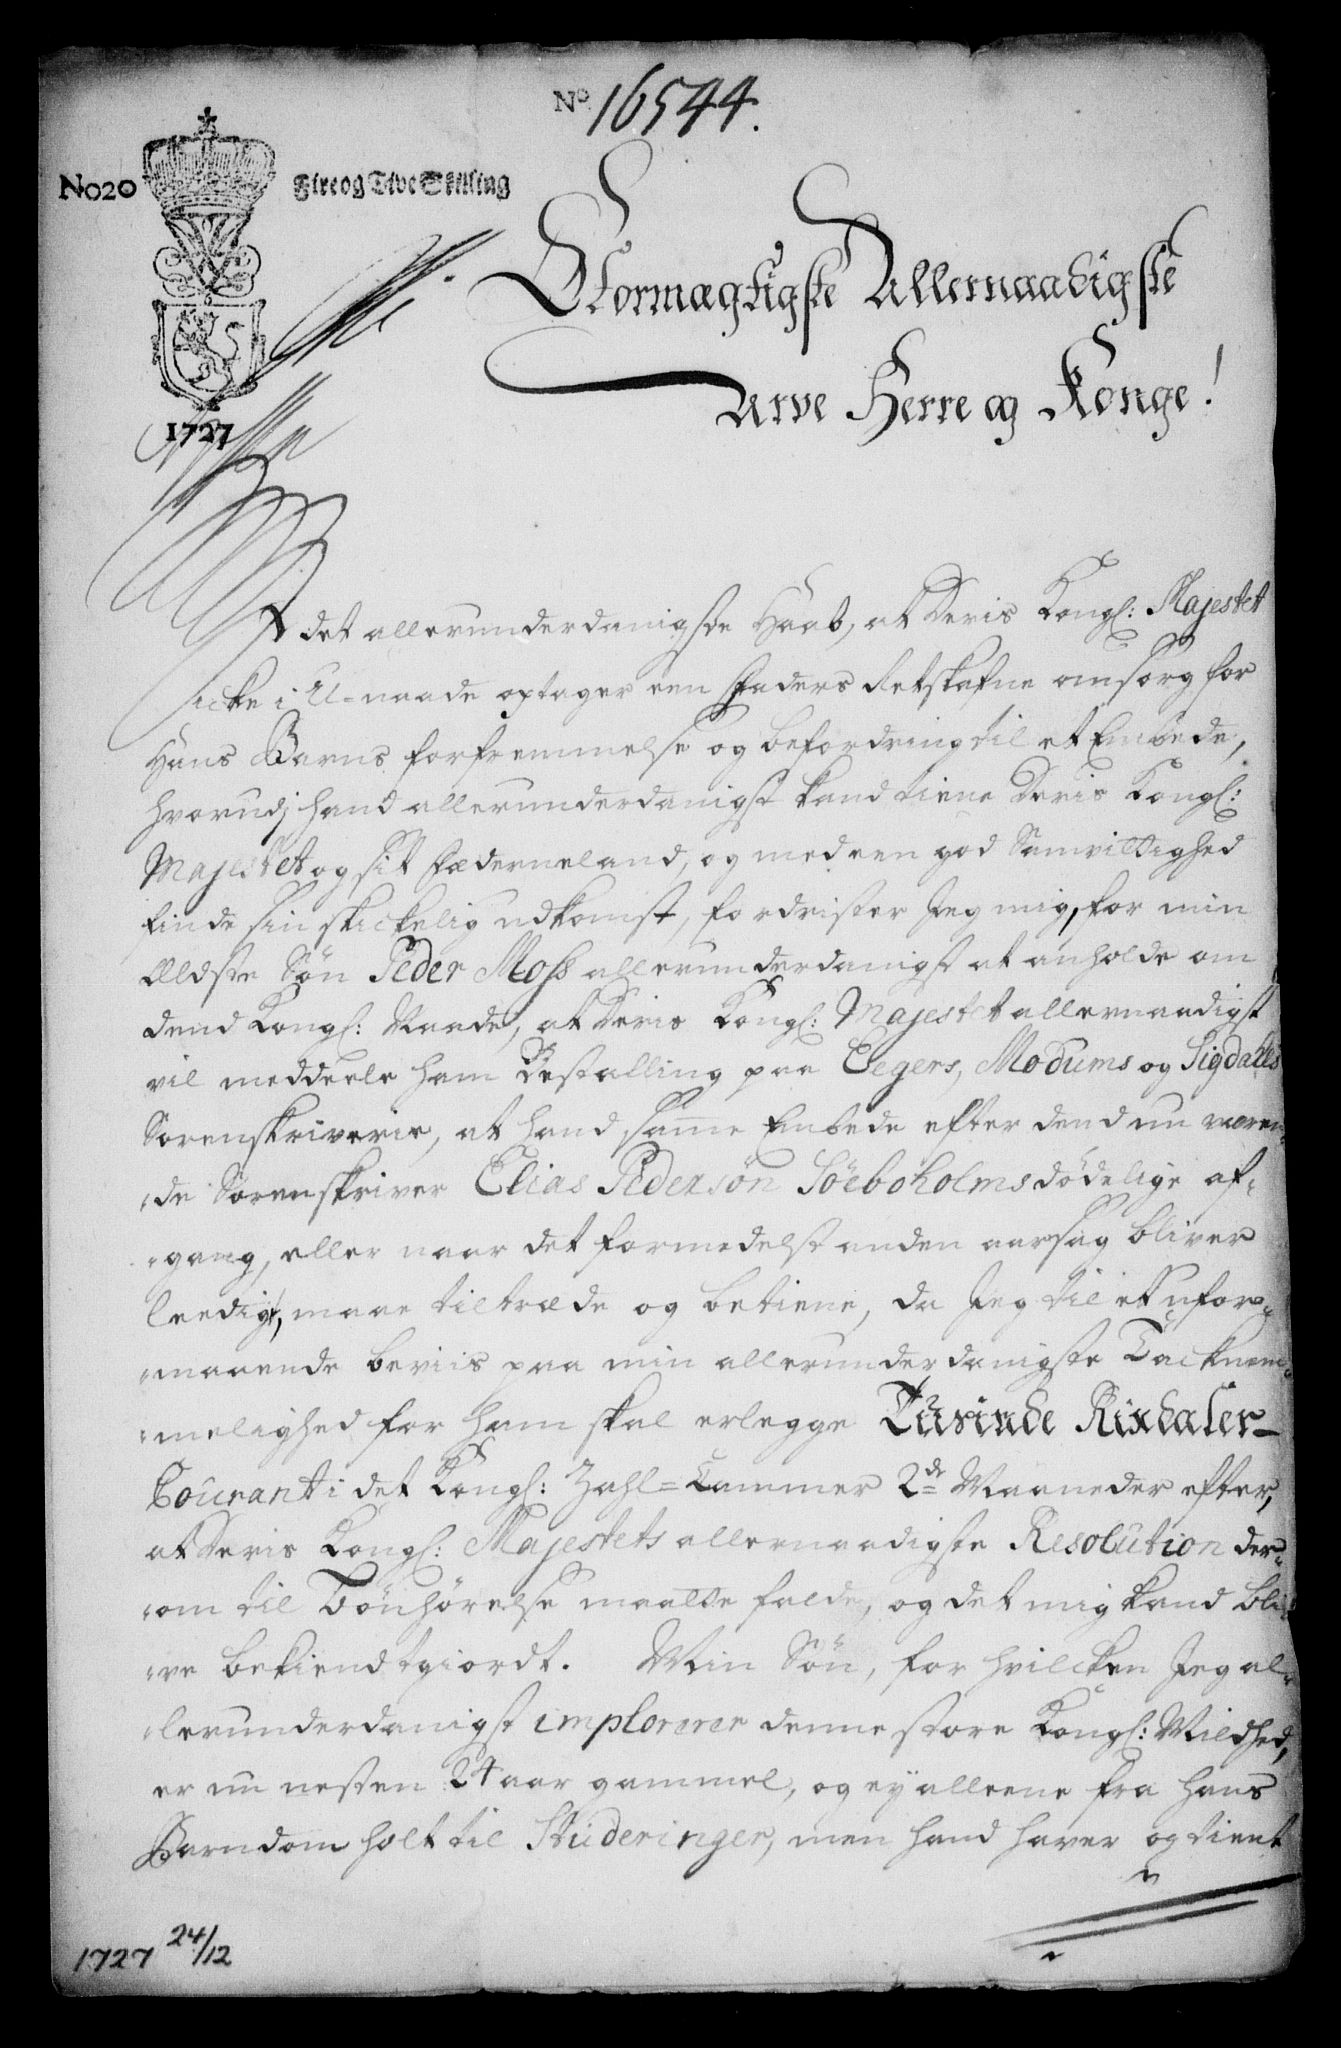 No. 16544.
No 20
Fire og Tive Skilling
Stormægtigste Allernaadigste
Arve Herre og Konge!
1727
I det allerunderdanigste Haab, at Deris Kongl: Majestet
icke i U-naade optager een Faders Retskafne omsorg for
Hans Barns forfremmelse og befordring til et Embede,
hvorudj hand allerunderdanigst kand tiene Deris Kongl:
Majestet og sit Fæderneland, og med een god Samvittighed
finde sin skickelig udkomst, fordrister Jeg mig, for min
Ældste Søn Peder Moss allerunderdanigst at anholde om
dend Kongl: Naade, at Deris Kongl: Majestet allernaadigst
vil meddeele ham Bestalling paa Eegers, Modums og Sigdahls
Sorenskriverie, at hand samme Embede efter dend nu væren-
de Sorenskriver Elias Pedersøn Söeboholms dødelige af-
gang, eller naar det formedelst anden aarsag bliver
leedigt, maae tiltræde og betiene, da Jeg til et ufor-
maaende beviis paa min allerunderdanigste Tacknem-
melighed for ham skal erlegge Tusinde Rixdaler
Courant i det Kongl: Zahl-Cammer 2de Maaneder efter,
at Deris Kongl: Majestets allernaadigste Resolution der-
om til Bönhørelse maatte falde, og det mig kand bli-
ve bekiendtgiordt. Min Søn, for hvilcken Jeg al-
lerunderdanigst implorerer denne store Kongl: Mildhed,
er nu nesten 24 aar gammel, og ey alleene fra hans
Barndom holt til Studeringer, men hand haver og tient
1727 24/12